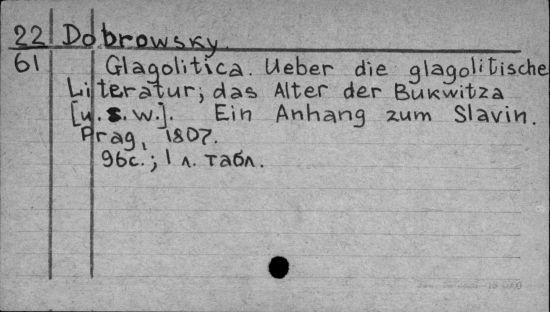 22 Dobrowsky.
61 Glagolitica. Ueber die glagolitische
Literatur; das Alter der Bukwitza
[u. s. w.]. Ein Anhang zum Slavin.
Prag, 1807.
96с.; 1 л. табл.